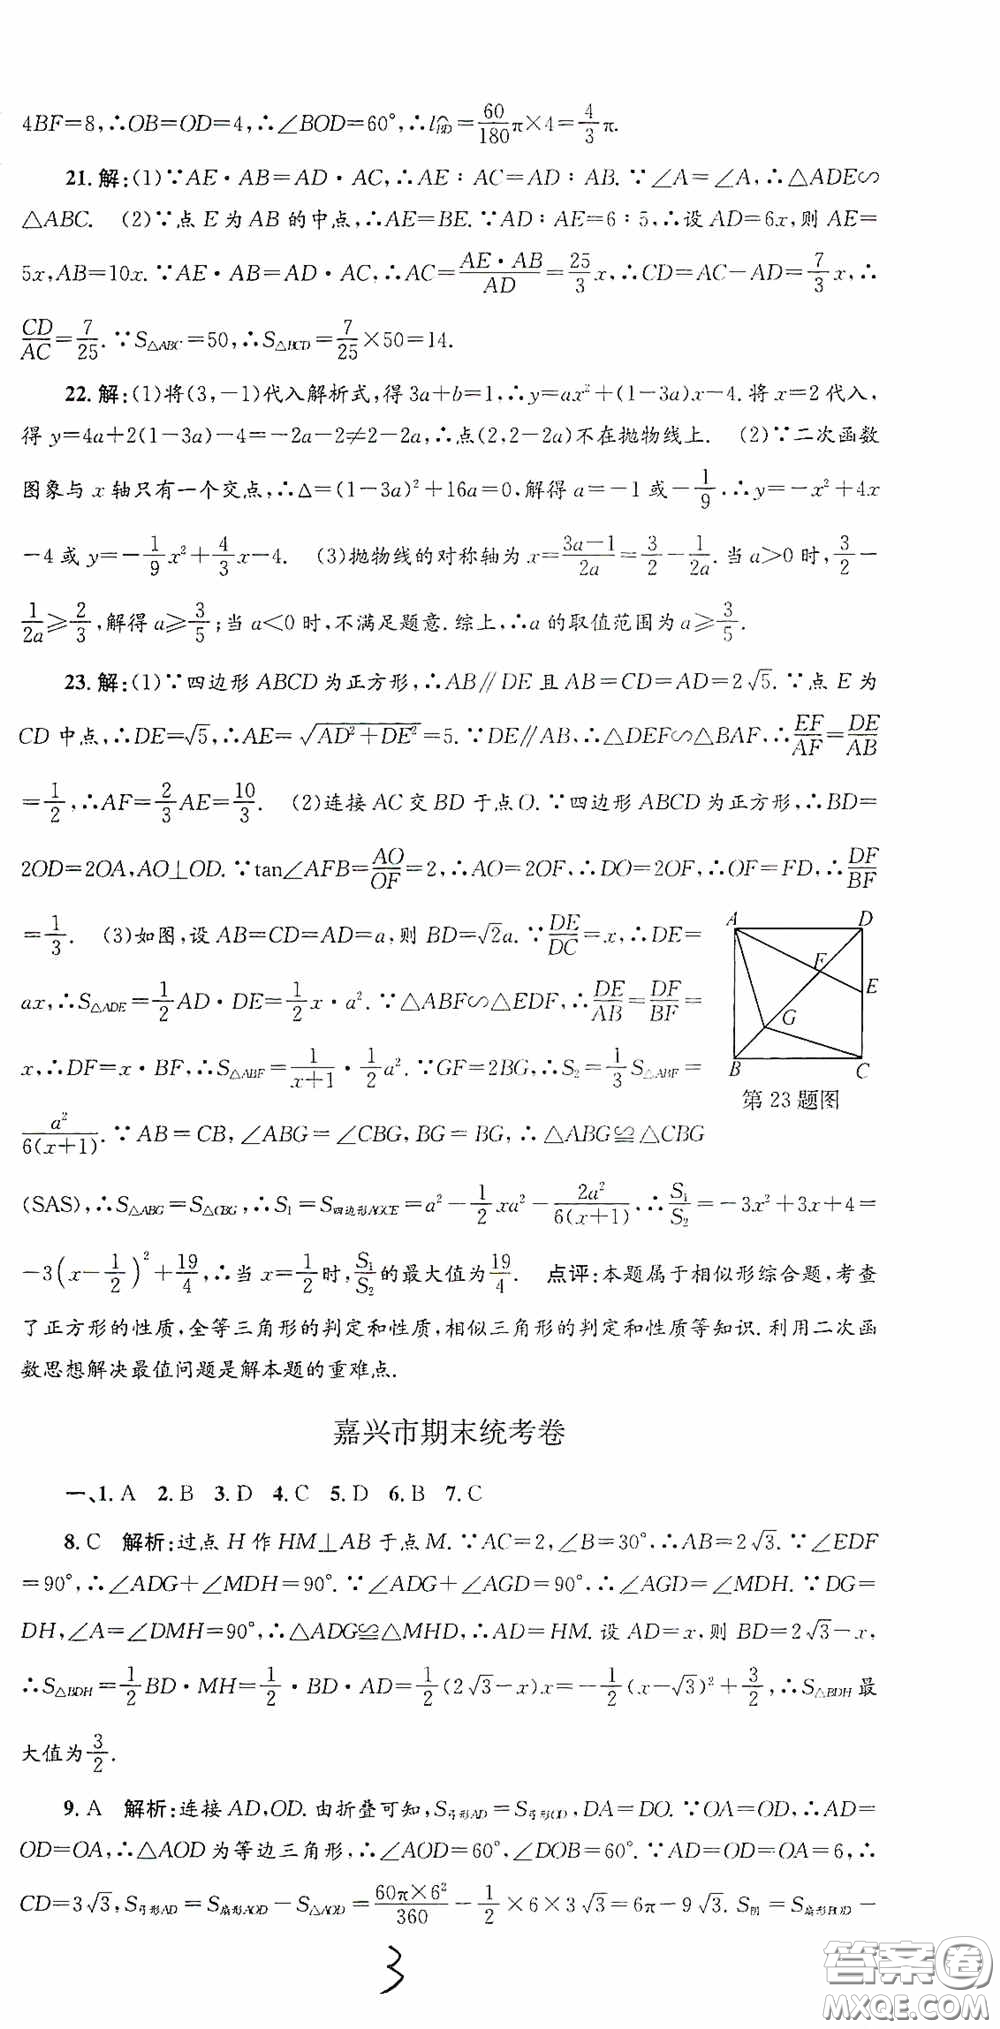 4BF=8,∴OB=OD=4,∴∠BOD=60°,∴l⌒BD=60/180π×4=4/3π.
21.解:(1)∵AE·AB=AD·AC,∴AE∶AC=AD∶AB.∵∠A=∠A,∴△ADE∽
△ABC. (2)∵点E为AB的中点,∴AE=BE.∵AD∶AE=6∶5,∴设AD=6x,则AE=
5x,AB=10x.∵AE·AB=AD·AC,∴AC=AE·AB/AD=25/3x,∴CD=AC-AD=7/3x,∴
CD/AC=7/25.∵S△ABC=50,∴S△BCD=7/25×50=14.
22.解:(1)将(3,-1)代入解析式,得3a+b=1,∴y=ax²+(1-3a)x-4.将x=2代入,
得y=4a+2(1-3a)-4=-2a-2≠2-2a,∴点(2,2-2a)不在抛物线上. (2)∵二次函数
图象与x轴只有一个交点,∴Δ=(1-3a)²+16a=0.解得a=-1或-1/9.∴y=-x²+4x
-4或y=-1/9x²+4/3x-4. (3)抛物线的对称轴为x=3a-1/2a=3/2-1/2a.当a>0时,3/2-
1/2a≥2/3,解得a≥3/5;当a<0时,不满足题意.综上,∴a的取值范围为a≥3/5.
23.解:(1)∵四边形ABCD为正方形,∴AB∥DE且AB=CD=AD=2√5.∵点E为
CD中点,∴DE=√5,∴AE=√(AD²+DE²)=5.∵DE∥AB,∴△DEF∽△BAF.∴EF/AF=DE/AB
=1/2,∴AF=2/3AE=10/3. (2)连接AC交BD于点O.∵四边形ABCD为正方形,∴BD=
2OD=2OA,AO⊥OD.∵tan∠AFB=AO/OF=2,∴AO=2OF,∴DO=2OF,∴OF=FD,∴DF/BF
=1/3. (3)如图,设AB=CD=AD=a,则BD=√2a.∵DE/DC=x,∴DE=
ax,∴S△ADE=1/2AD·DE=1/2x·a².∵△ABF∽△EDF,∴DE/AB=DF/BF=
x,∴DF=x·BF,∴S△ABF=1/(x+1)·1/2a².∵GF=2BG,∴S₂=1/3S△ABF=
a²/6(x+1).∵AB=CB,∠ABG=∠CBG,BG=BG,∴△ABG≌△CBG
(SAS),∴S△ABG=S△CBG,∴S₁=S四边形AGCE=a²-1/2xa²-2a²/6(x+1).∴S₁/S₂=-3x²+3x+4=
-3(x-1/2)²+19/4,∴当x=1/2时,S₁/S₂的最大值为19/4. 点评:本题属于相似形综合题,考查
了正方形的性质,全等三角形的判定和性质,相似三角形的判定和性质等知识.利用二次函
数思想解决最值问题是解本题的重难点.
A
D
F
E
G
B
C
第23题图
嘉兴市期末统考卷
一、1.A 2.B 3.D 4.C 5.D 6.B 7.C
8.C 解析:过点H作HM⊥AB于点M.∵AC=2,∠B=30°,∴AB=2√3.∵∠EDF
=90°,∴∠ADG+∠MDH=90°.∵∠ADG+∠AGD=90°,∴∠AGD=∠MDH.∵DG=
DH,∠A=∠DMH=90°,∴△ADG≌△MHD,∴AD=HM.设AD=x,则BD=2√3-x,
∴S△BDH=1/2BD·MH=1/2·BD·AD=1/2(2√3-x)x=-1/2(x-√3)²+3/2,∴S△BDH最
大值为3/2.
9.A 解析:连接AD,OD.由折叠可知,S弓形AD=S弓形OD,DA=DO.∵OA=OD,∴AD=
OD=OA,∴△AOD为等边三角形,∴∠AOD=60°,∠DOB=60°.∵AD=OD=OA=6,∴
CD=3√3,S弓形AD=S扇形AOD-S△AOD=60π×6²/360-1/2×6×3√3=6π-9√3.S阴=S扇形BOD-
3
答案圈
MXQE.COM